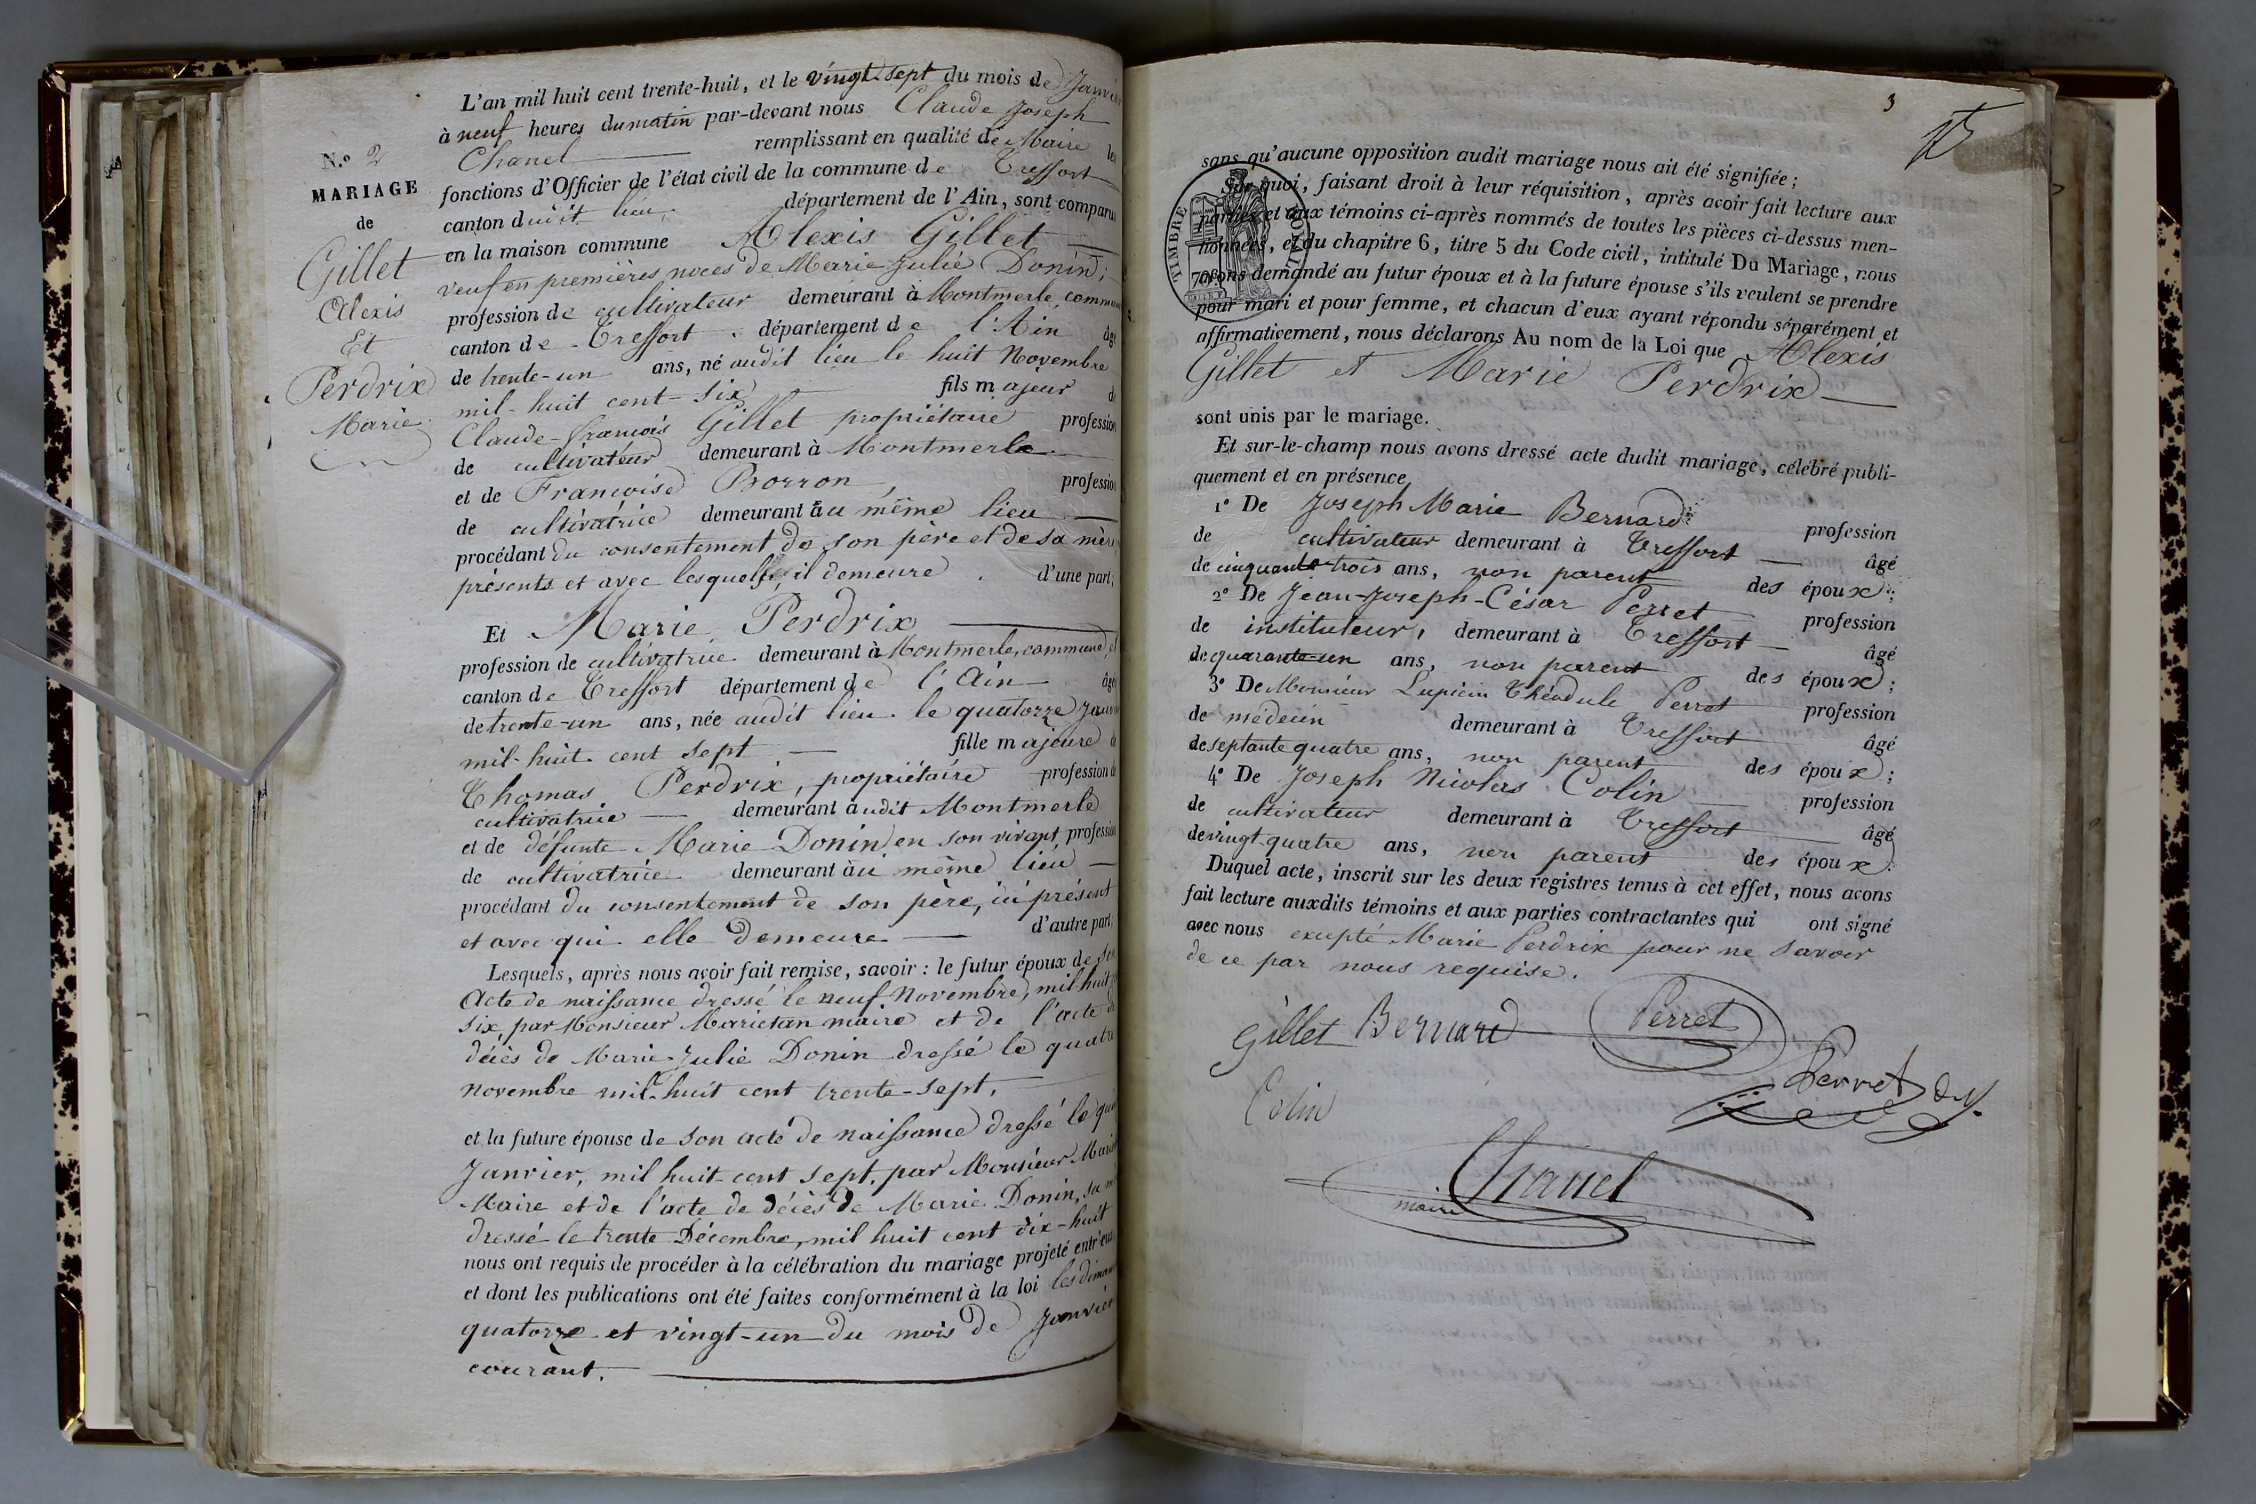 L'an mil huit cent trente-huit, et le vingt-sept du mois de Janvier
à neuf heures du matin par-devant nous Claude Joseph
Chanel remplissant en qualité de Maire les
fonctions d'Officier de l'état civil de la commune de Treffort
canton dudit lieu, département de l'Ain, sont comparus
en la maison commune Alexis Gillet
veuf en premières noces de Marie Julie Donin,
profession de cultivateur demeurant à Montmerle, commune
canton de Treffort département de l'Ain âgé
de trente-un ans, né audit lieu le huit Novembre
mil-huit cent-six fils majeur de
Claude-François Gillet propriétaire profession
de cultivateur demeurant à Montmerle
et de Françoise Borron, profession
de cultivatrice demeurant au même lieu
procédant du consentement de son père et de sa mère
présents et avec lesquels il demeure d'une part;
Et Marie Perdrix
profession de cultivatrice demeurant à Montmerle, commune, et
canton de Treffort département de l'Ain âgé
de trente-un ans, née audit lieu le quatorze Janvier
mil-huit cent sept fille majeure de
Thomas Perdrix, propriétaire profession de
cultivatrice demeurant audit Montmerle
et de défunte Marie Donin en son vivant profession
de cultivatrice demeurant au même lieu
procédant du consentement de son père, ici présent
et avec qui elle demeure d'autre part;
Lesquels, après nous avoir fait remise, savoir : le futur époux de son
Acte de naissance dressé le neuf Novembre, mil huit
six, par Monsieur Marietan maire et de l'acte de
décès de Marie-Julie Donin dressé le quatre
novembre mil-huit cent trente-sept,
et la future épouse de son acte de naissance dressé le
Janvier, mil huit-cent sept, par Monsieur
Maire et de l'acte de décès de Marie Donin, sa
dressé le trente Décembre, mil huit cent dix-huit
nous ont requis de procéder à la célébration du mariage projeté entr'eux
et dont les publications ont été faites conformément à la loi les
quatorze et vingt-un du mois de Janvier
courant.
N.º 2
MARIAGE
de
Gillet
Alexis
Et
Perdrix
Marie
3
sans qu'aucune opposition audit mariage nous ait été signifiée ;
Sur quoi, faisant droit à leur réquisition, après avoir fait lecture aux
parties et aux témoins ci-après nommés de toutes les pièces ci-dessus men-
tionnées, et du chapitre 6, titre 5 du Code civil, intitulé Du Mariage, nous
avons demandé au futur époux et à la future épouse s'ils veulent se prendre
pour mari et pour femme, et chacun d'eux ayant répondu séparément et
affirmativement, nous déclarons Au nom de la Loi que Alexis
Gillet et Marie Perdrix
sont unis par le mariage.
Et sur-le-champ nous avons dressé acte dudit mariage, célébré publi-
quement et en présence
1º De Joseph Marie Bernard profession
de cultivateur demeurant à Treffort âgé
de cinquante-trois ans, non parent des époux ;
2º De Jean-Joseph-César Perret profession
de instituteur, demeurant à Treffort âgé
de quarante-un ans, non parent des époux ;
3º De Monsieur Lupicin Théodule Perret profession
de médecin demeurant à Treffort âgé
de septante quatre ans, non parent des époux ;
4º De Joseph Nicolas Colin profession
de cultivateur demeurant à Treffort âgé
de vingt-quatre ans, non parent des époux.
Duquel acte, inscrit sur les deux registres tenus à cet effet, nous avons
fait lecture auxdits témoins et aux parties contractantes qui ont signé
avec nous excepté Marie Perdrix pour ne savoir
de ce par nous requise.
Gillet Bernard Perret
Perret D.M.
Colin
Chanel
maire
TIMBRE ROYAL